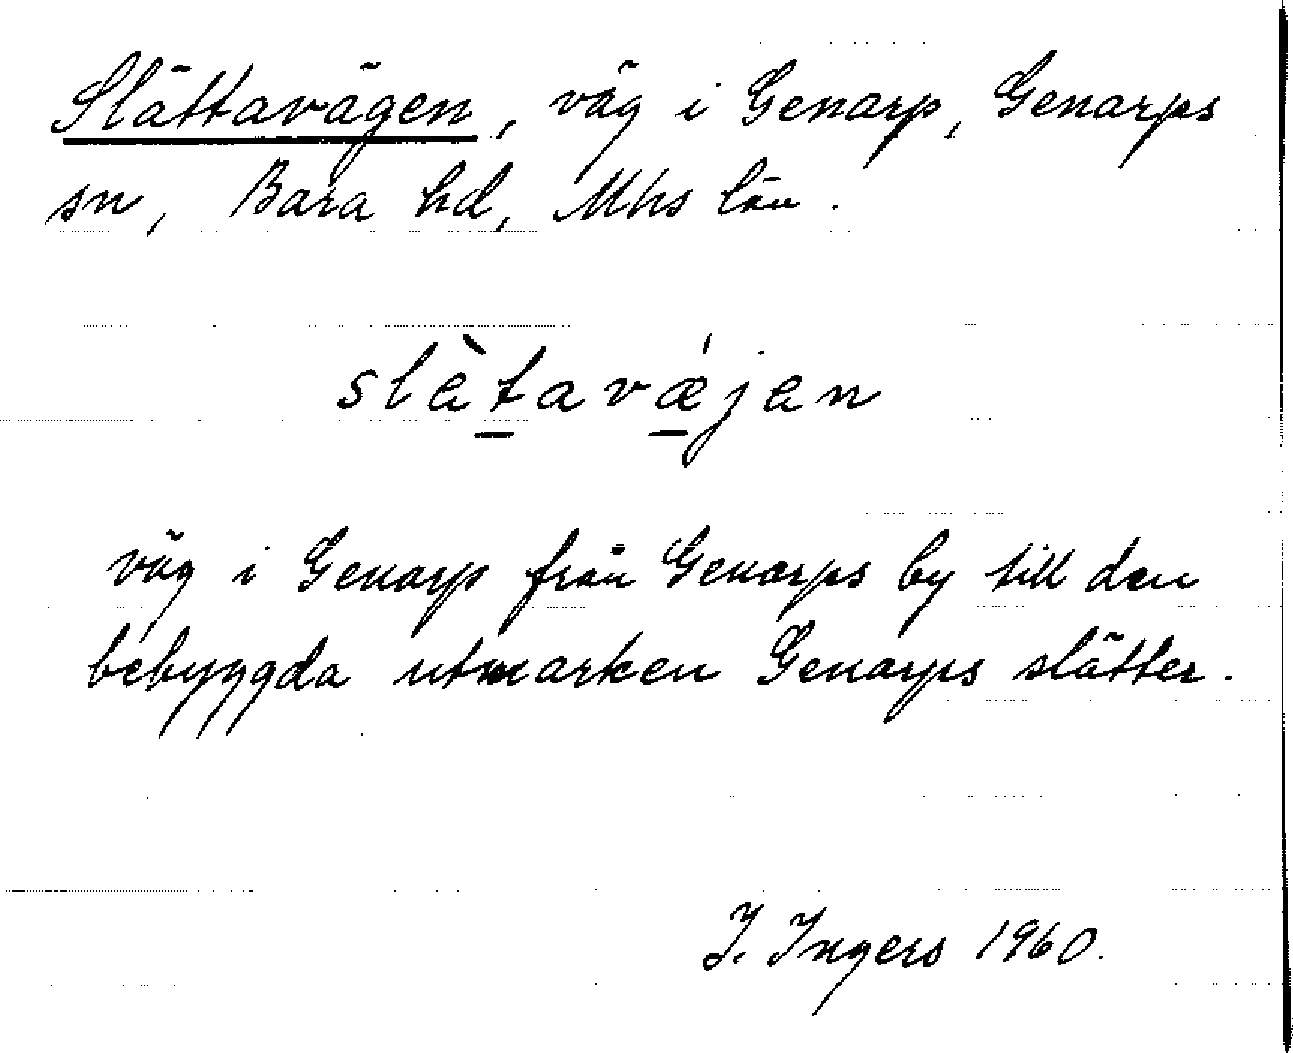 Slättavägen, väg i Genarp, Genarps
sn, Bara hd, Mhs län.
slètavǽjen
väg i Genarp från Genarps by till den
bebyggda utmarken Genarps slätter.
I. Ingers 1960.